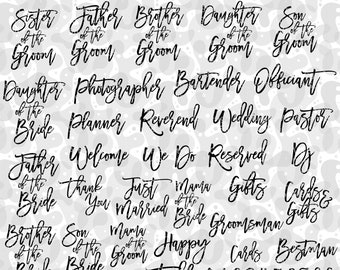 Sister of the Groom
Father of the Groom
Brother of the Groom
Daughter of the Groom
Son of the Groom
Daughter of the Bride
Photographer
Bartender
Officiant
Planner
Reverend
Wedding
Pastor
Father of the Bride
Welcome
We Do
Reserved
Dj
Thank You
Just Married
Mama of the Bride
Gifts
Cards & Gifts
Brother of the
Son of the Bride
Mama of the Groom
Happy
Groomsman
Cards
Bestman